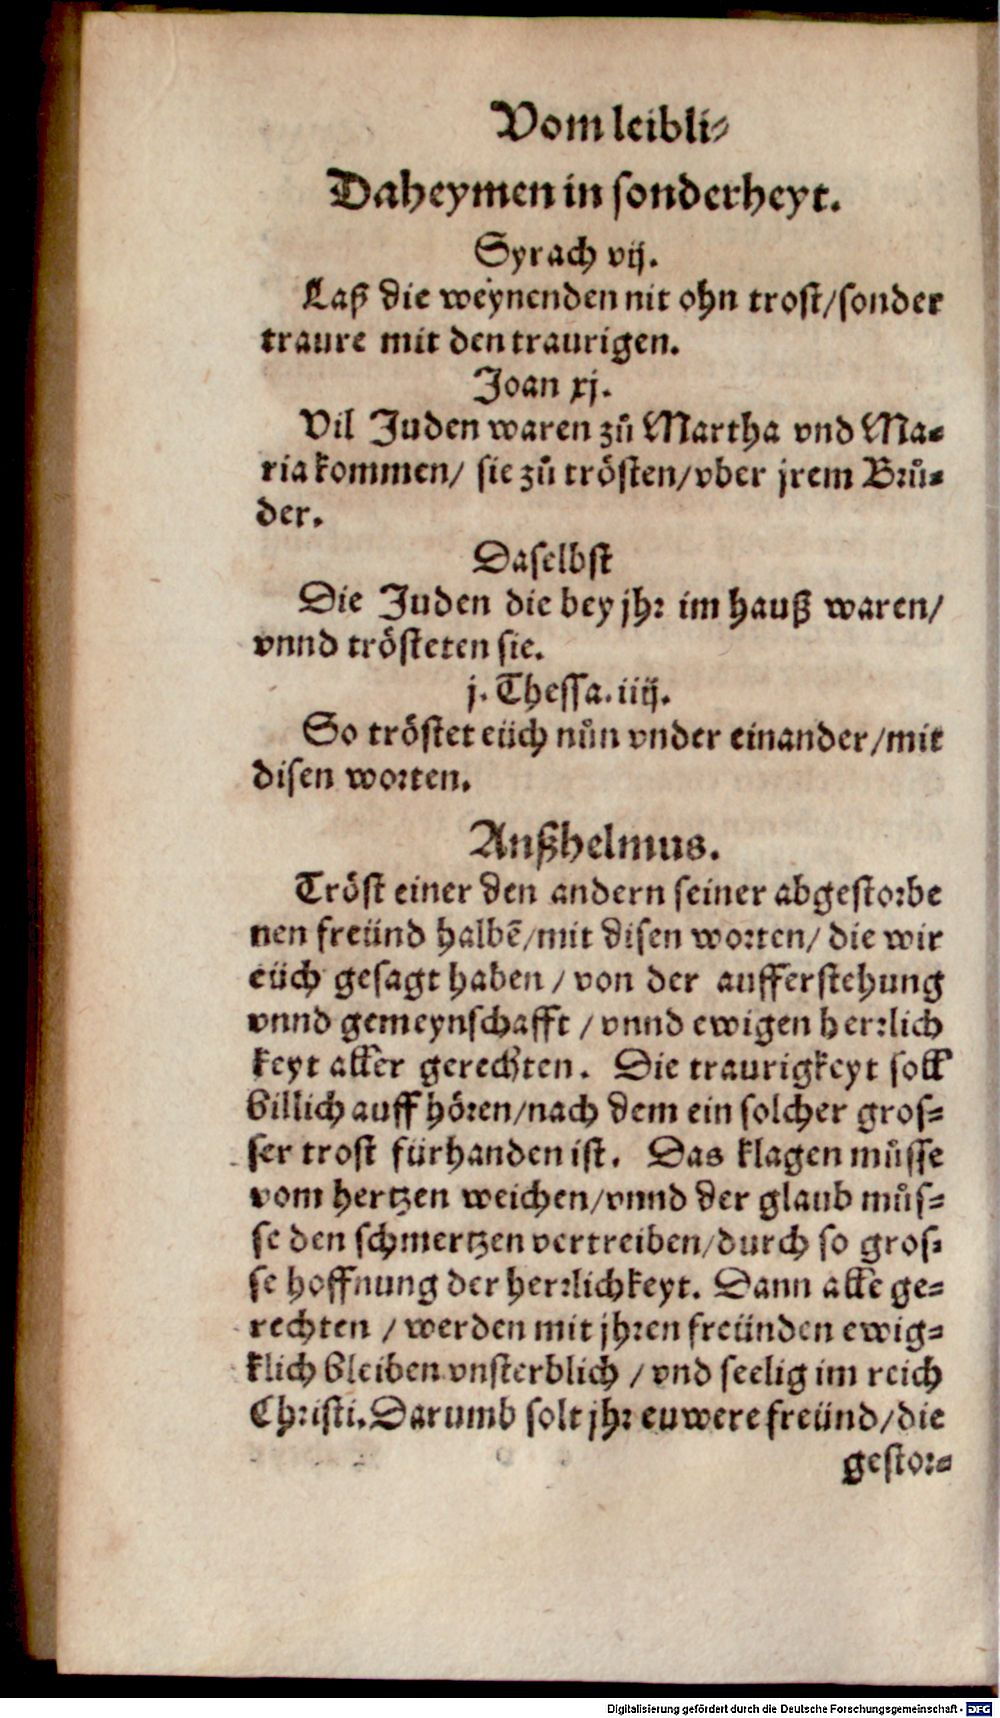 Vom leibli⸗
Daheymen in sonderheyt.
Syrach vij.
Laß die weynenden nit ohn trost/sonder
traure mit den traurigen.
Joan xj.
Vil Juden waren zů Martha vnd Ma⸗
ria kommen/ sie zů trösten/vber jrem Brů⸗
der.
Daselbst
Die Juden die bey jhr im hauß waren/
vnnd trösteten sie.
j. Thessa. iiij.
So tröstet eüch nůn vnder einander/mit
disen worten.
Anßhelmus.
Tröst einer den andern seiner abgestorbe
nen freünd halbē/mit disen worten/ die wir
eüch gesagt haben / von der aufferstehung
vnnd gemeynschafft / vnnd ewigen herrlich
keyt aller gerechten. Die traurigkeyt soll
billich auff hören/nach dem ein solcher gros⸗
ser trost fürhanden ist. Das klagen můsse
vom hertzen weichen/vnnd der glaub můs⸗
se den schmertzen vertreiben/durch so gros⸗
se hoffnung der herrlichkeyt. Dann alle ge⸗
rechten / werden mit jhren freünden ewig⸗
klich bleiben vnsterblich / vnd seelig im reich
Christi. Darumb solt jhr euwere freünd/die
gestor⸗
Digitalisierung gefördert durch die Deutsche Forschungsgemeinschaft - DFG